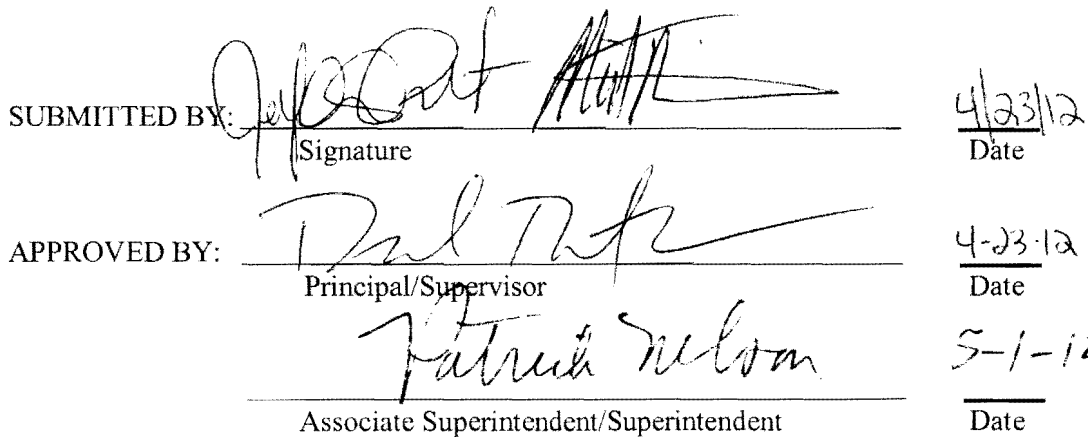 SUBMITTED BY: 4/23/12
Signature Date
APPROVED BY: 4-23-12
Principal/Supervisor Date
Patrick Nelson 5-1-12
Associate Superintendent/Superintendent Date